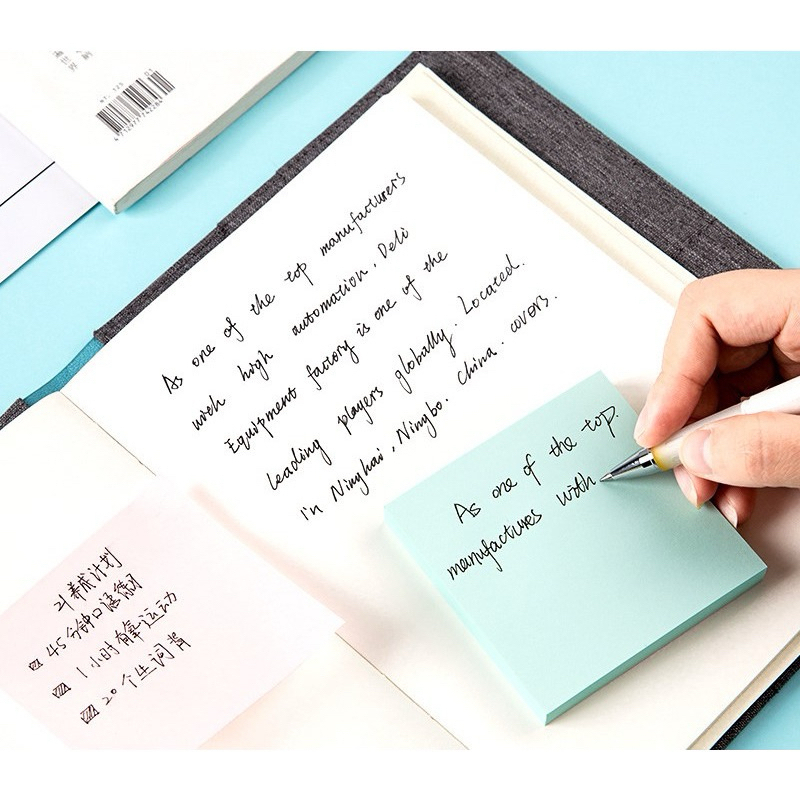 As one of the top manufacturers
with high automation, Deli
Equipment factory is one of the
leading players globally. Located.
in Ninghai, Ningbo. China. covers.
As one of the top.
manufactures with
21养成计划
45分钟口语
1小时有氧运动
20个生词背